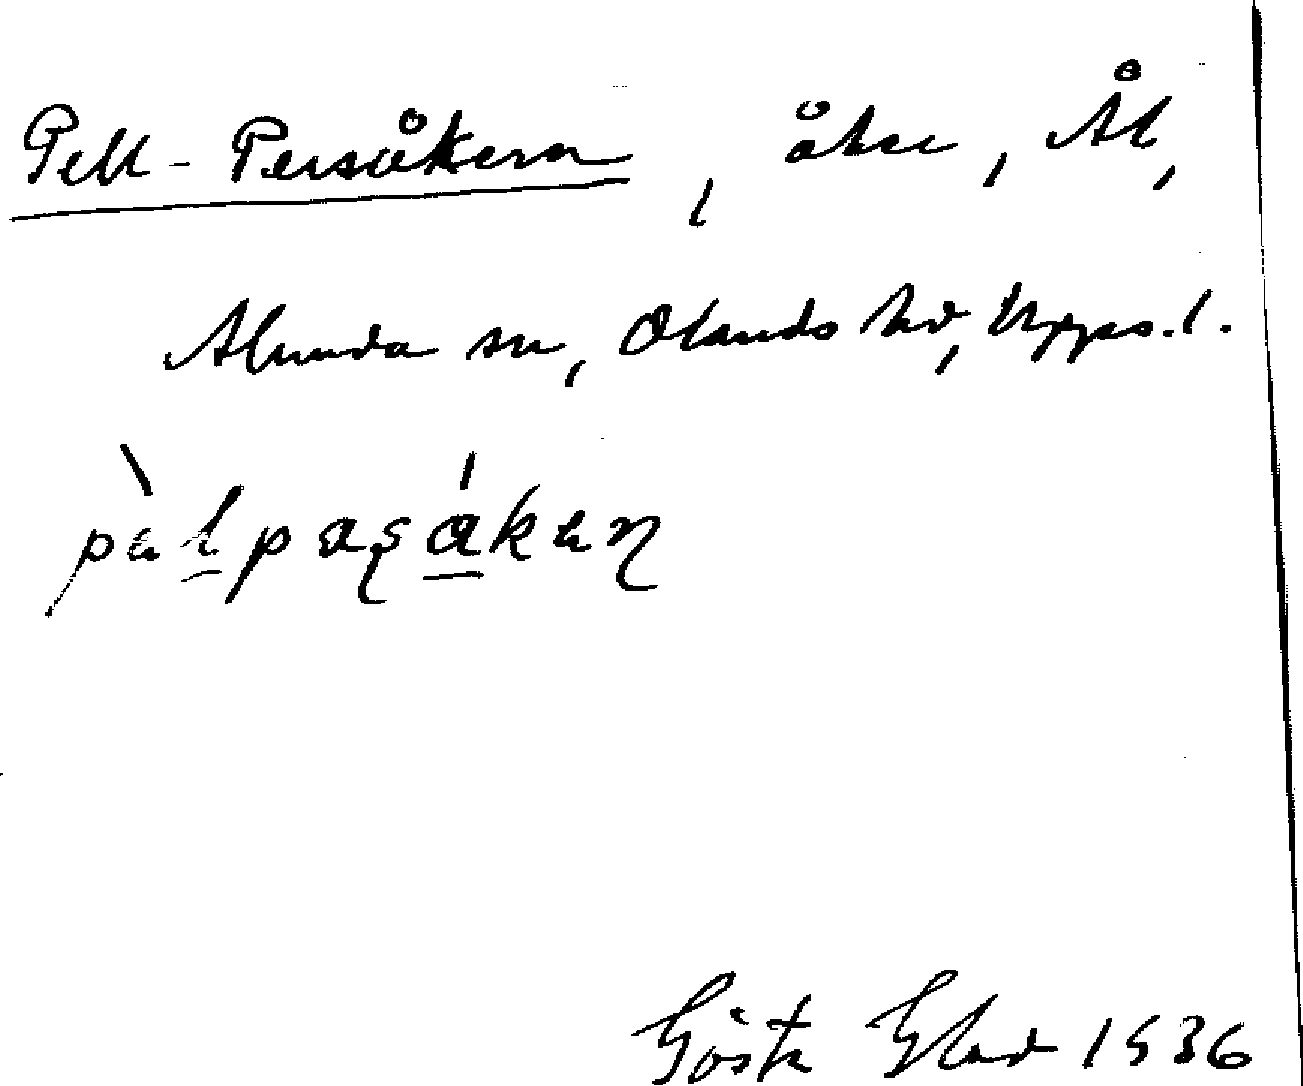 Pell-Persåkern, åker, Ål,
Alunda sn, Olands hd, Upps.l.
pälpaşåkäɳ
Gösta Glad 1936